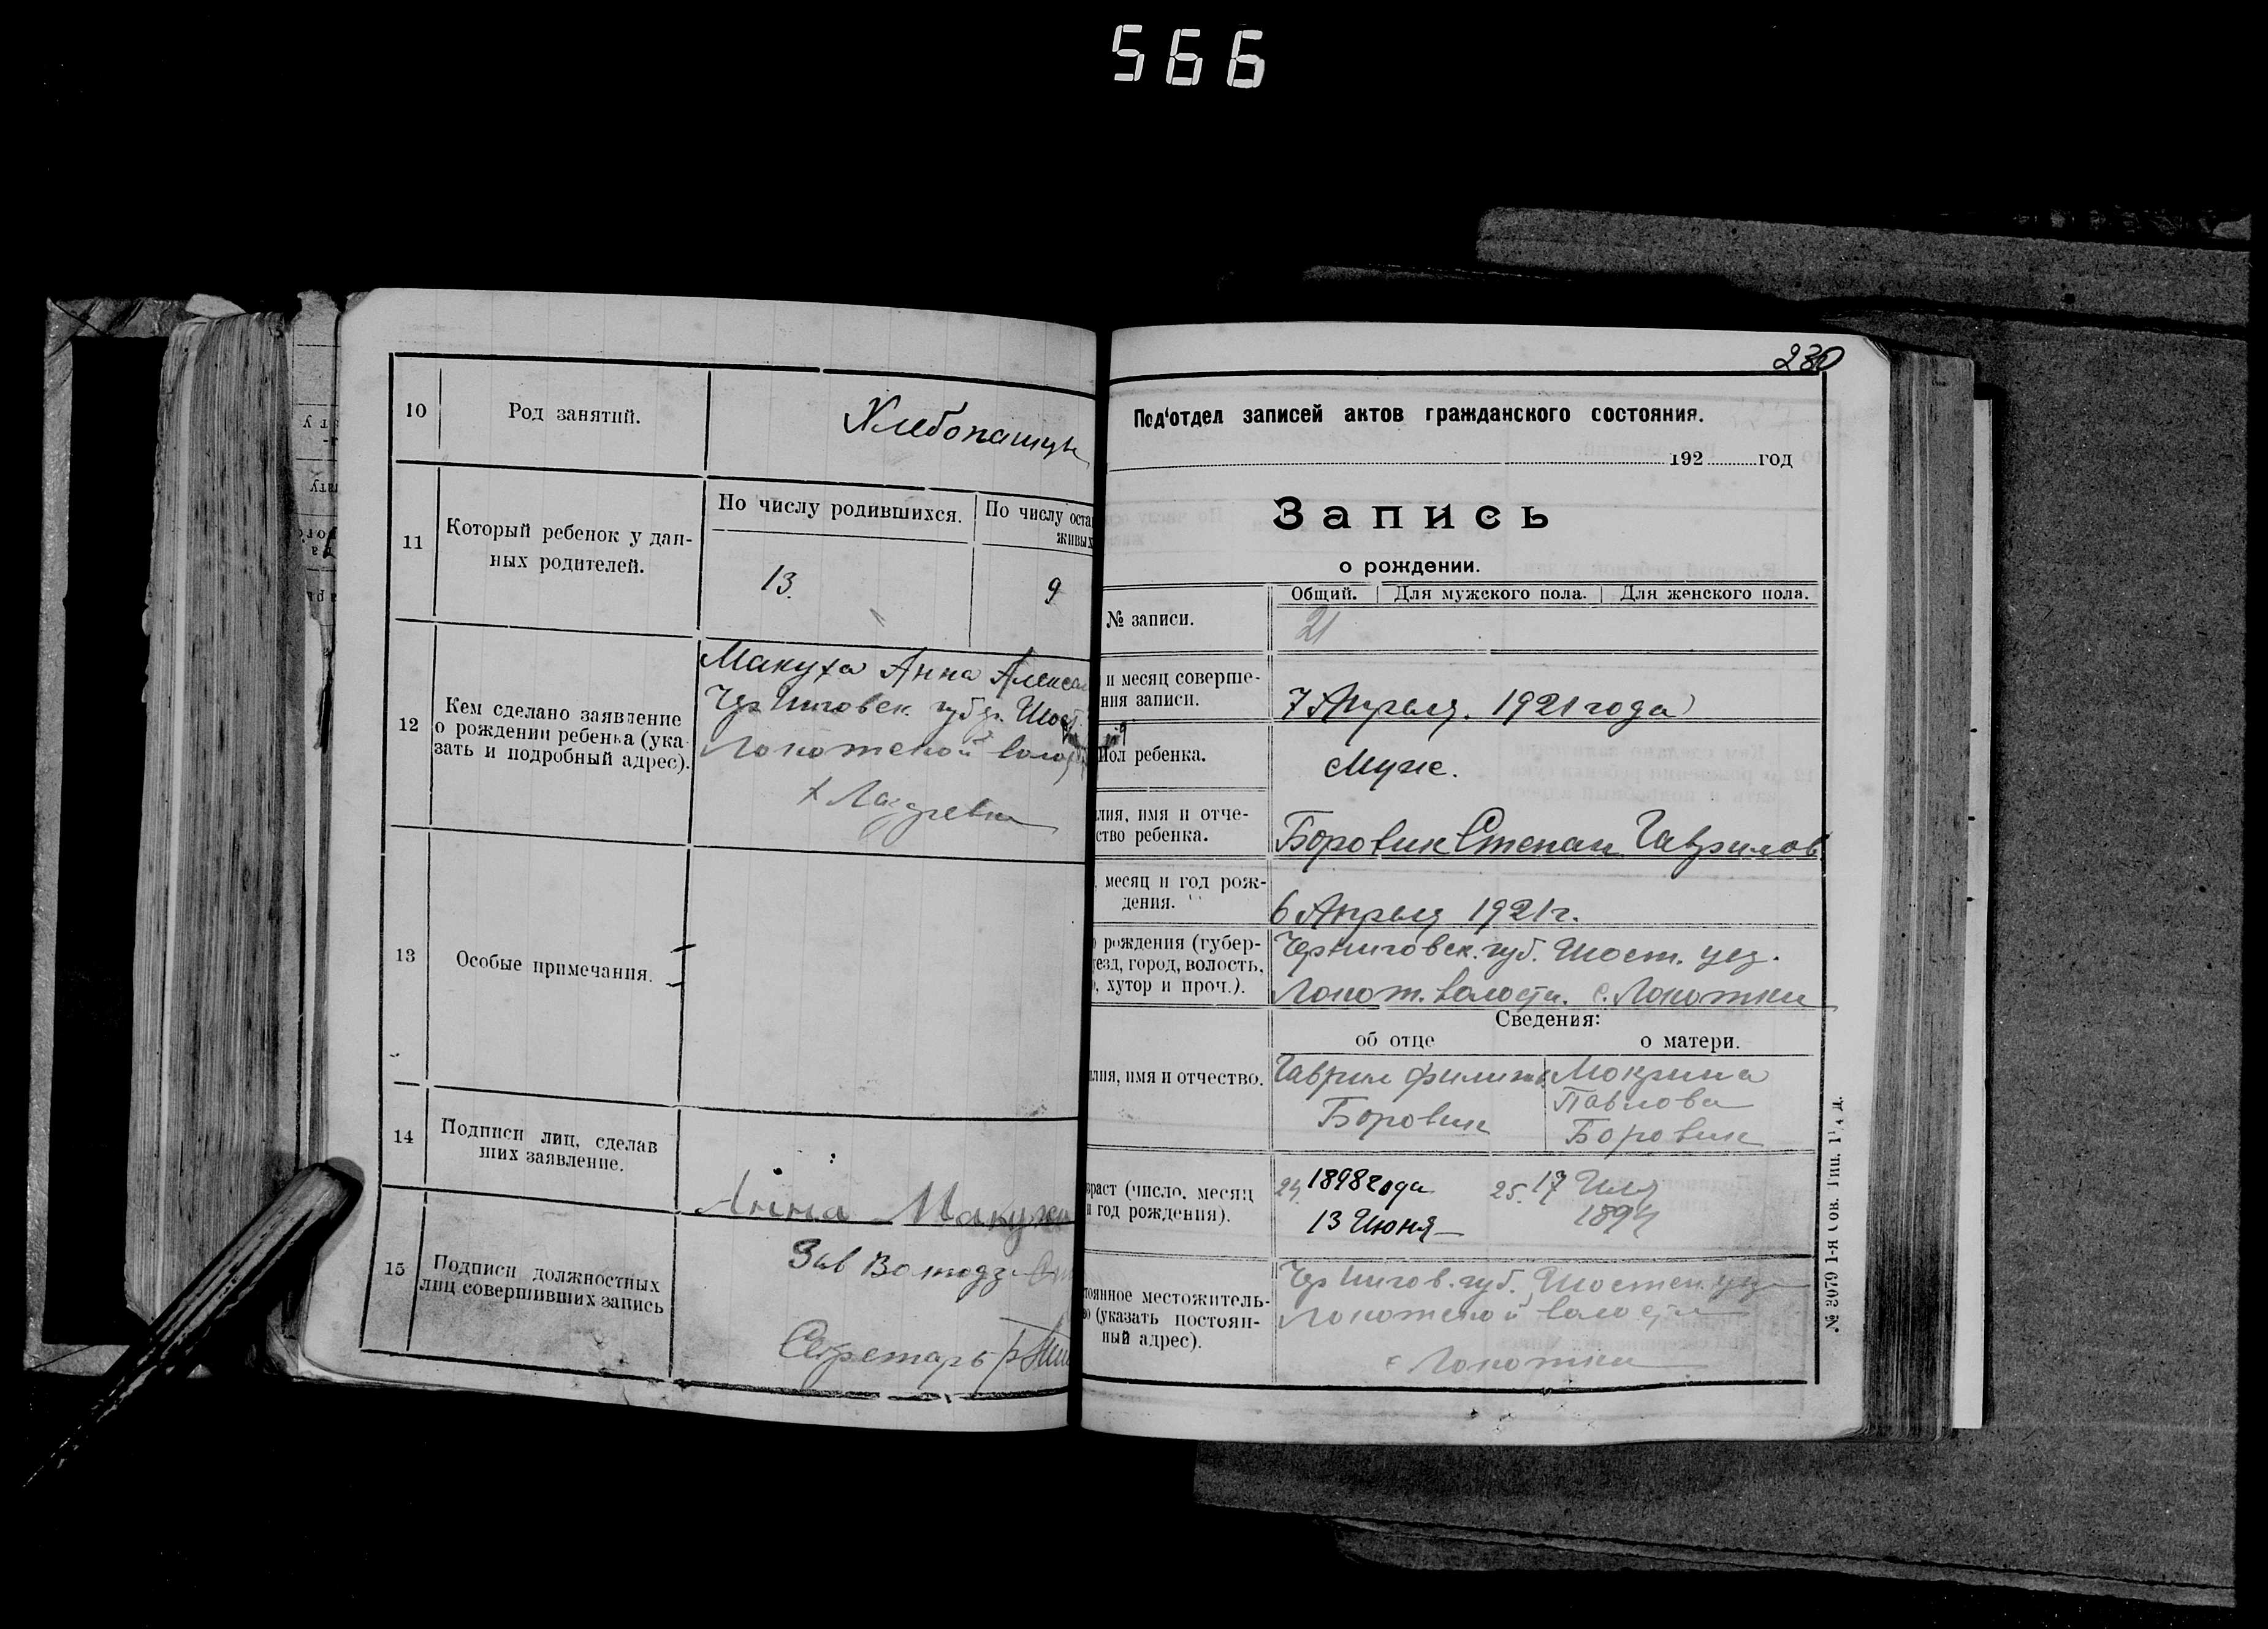 566
10
Род занятий.
Хлебопашцы
11
Который ребенок у дан-
ных родителей.
По числу родившихся.
По числу оста
живых
13.
9
12
Кем сделано заявление
о рождении ребенка (ука-
зать и подробный адрес).
Макуха Анна Алекса
Черниговск. губ.
Локотской волос
х Лазаревка
13
Особые примечания.
14
Подписи лиц, сделав
ших заявление.
Анна Макух
15
Подписи должностных
лиц совершивших запись
Зав
Секретарь
230
Под'отдел записей актов гражданского состояния.
192 год
Запись
о рождении.
№ записи.
Общий.
Для мужского пола.
Для женского пола.
21
и месяц соверше-
ния записи.
7 Апреля. 1921 года
Пол ребенка.
Муж.
лия, имя и отче-
ство ребенка.
Боровик Степан Гаврилов
, месяц и год рож-
дения.
6 Апреля 1921 г.
о рождения (губер-
уезд, город, волость,
о, хутор и проч.).
Черниговск. губ. Шост. уез.
Локот. волости. с. Локотки
Сведения:
об отце
о матери.
лия, имя и отчество.
Гаврил Филип.
Боровик
Мокрина
Павлова
Боровик
зраст (число, месяц
и год рождения).
24. 1898 года
13 Июня
25. 17
189
тоянное местожитель-
во (указать постоян-
ный адрес).
Чернигов. губ. Шостен. уез
Локотской волости
с Локотки